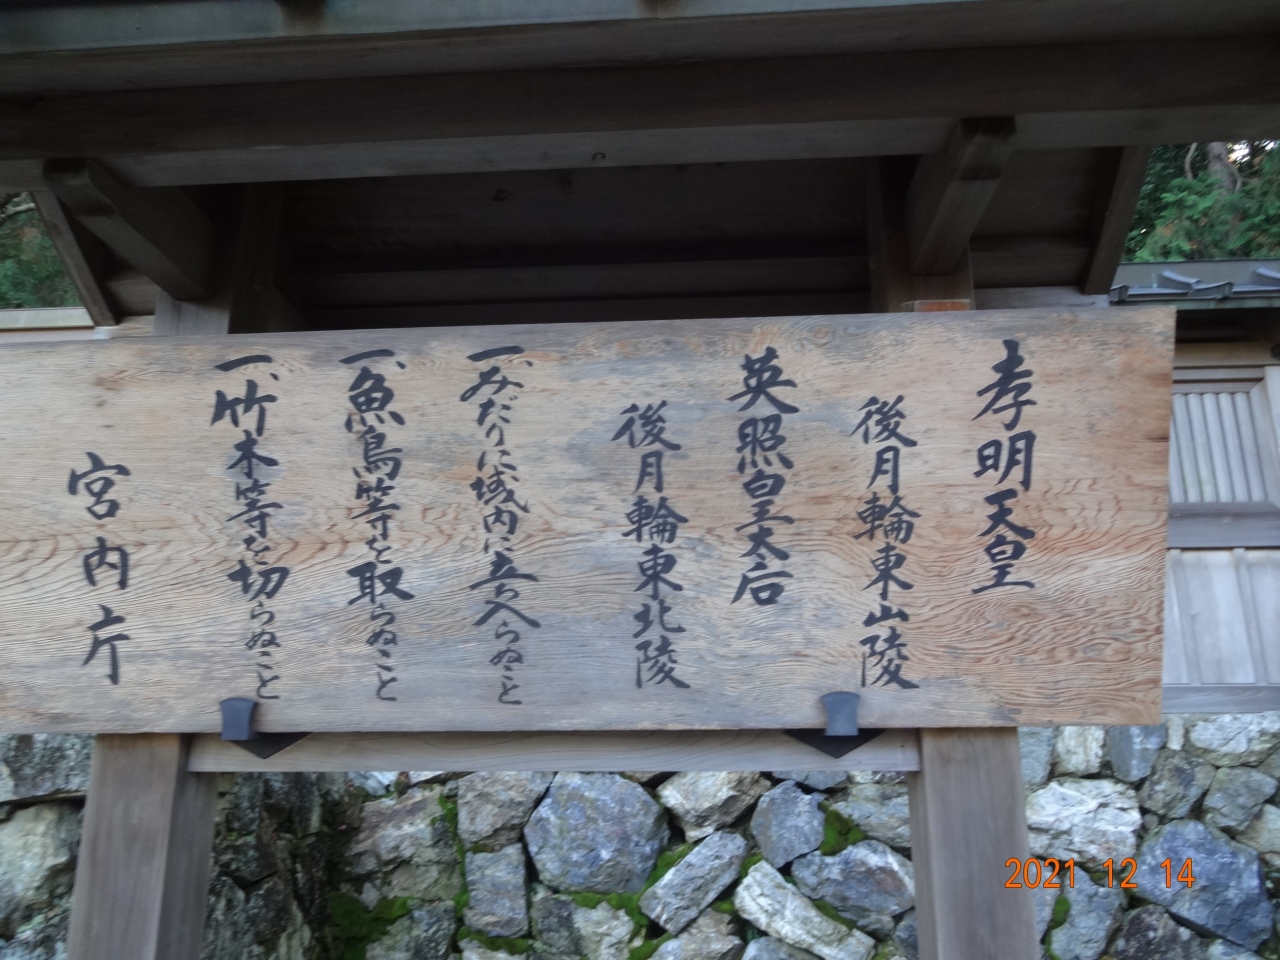 孝明天皇
後月輪東山陵
英照皇太后
後月輪東北陵
一、みだりに域内に立ち入らぬこと
一、魚鳥等を取らぬこと
一、竹木等を切らぬこと
宮内庁
2021 12 14